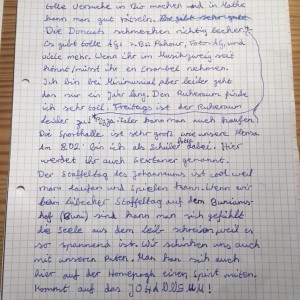 tolle Versuche in Bio machen und in Mathe
kann man gut rätseln. Es gibt sehr gute
Die Donuts schmecken richtig lecker.
Es gibt tolle AGs z.B. Parkour, Foto-AG, und
viele mehr. Wenn ihr im Musikzweig seit
könnt/müsst ihr ein Ensembel nehmen.
Ich bin bei Minimusical aber leider geht
das nur ein Jahr lang. Den Ruheraum finde
ich sehr toll. Freitags ist der Ruheraum
leider zu. Pizza-Taler kann man auch kaufen.
Die Sporthalle ist sehr groß wie unsere Mensa
Am 8.02. bin ich als Schüler dabei. Hier
werdet ihr auch Sextaner genannt.
Der Staffeltag des Johanneums ist cool weil
man laufen und Spielen kann. Wenn wir
beim Lübecker Staffeltag auf dem Buniams-
hof (Buni) sind kann man sich gefühlt
die Seele aus dem leib schreien weil es
so spannend ist. Wir schminken uns auch
mit unseren Paten. Man kan sich auch
hier auf der Homepage einen Spint mieten.
Kommt auf das JOHANNEUM!